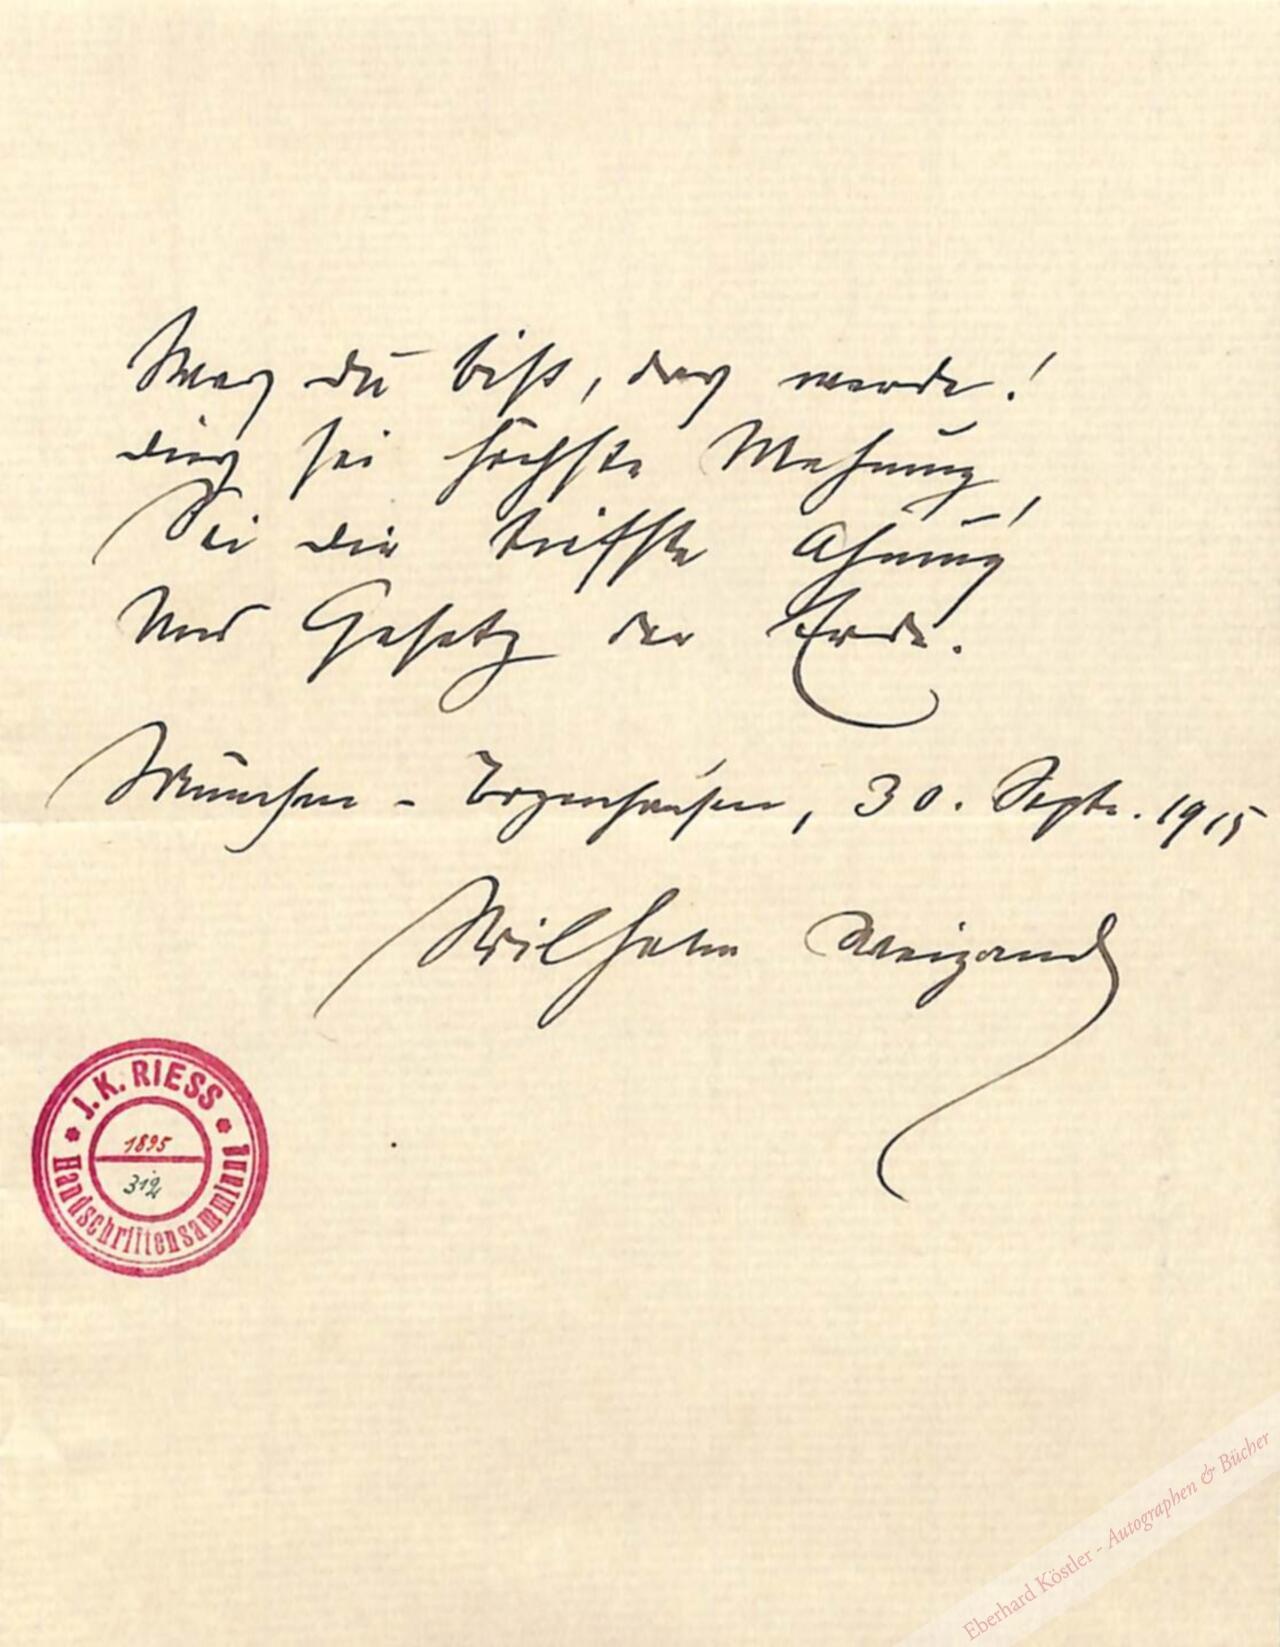 Was du bist, das werde!
dies sei höchste Mahnung,
Sei die tiefste Ahnung
Und Gesetz der Erde.
München - Bogenhausen, 30. Septr. 1915
Wilhelm Weigand
J. K. RIESS
1895
Handschriftensammlung
Eberhard Köstler - Autographen & Bücher